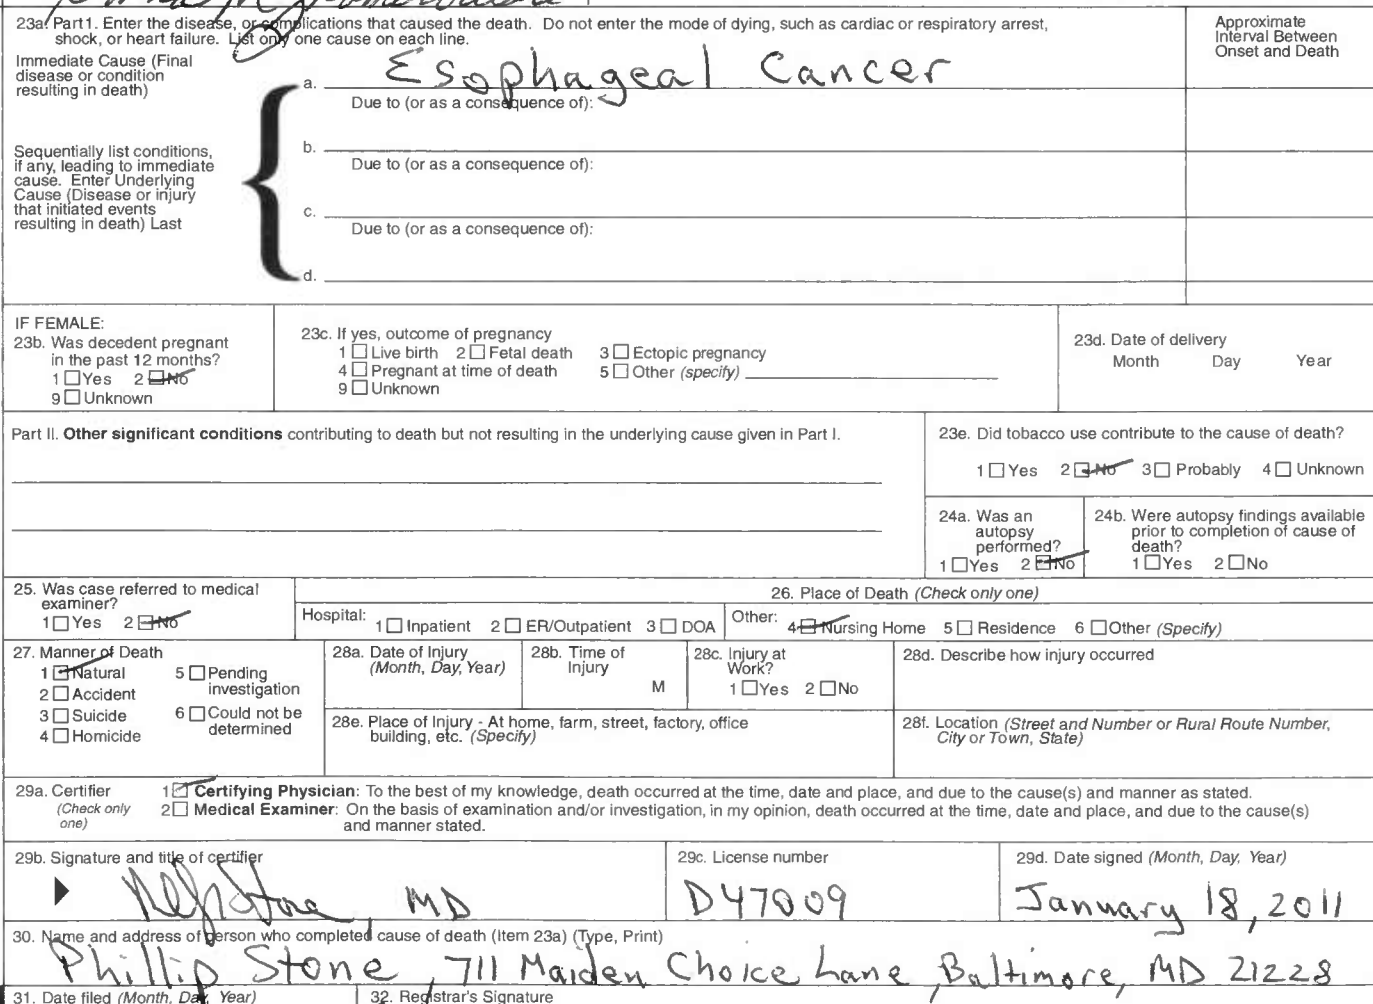 23a. Part1. Enter the disease, or complications that caused the death. Do not enter the mode of dying, such as cardiac or respiratory arrest,
shock, or heart failure. List only one cause on each line.
Approximate
Interval Between
Onset and Death
Immediate Cause (Final
disease or condition
resulting in death)
a. Esophageal Cancer
Due to (or as a consequence of):
Sequentially list conditions,
if any, leading to immediate
cause. Enter Underlying
Cause (Disease or injury
that initiated events
resulting in death) Last
b.
Due to (or as a consequence of):
c.
Due to (or as a consequence of):
d.
IF FEMALE:
23b. Was decedent pregnant
in the past 12 months?
1 Yes 2 No
9 Unknown
23c. If yes, outcome of pregnancy
1 Live birth 2 Fetal death 3 Ectopic pregnancy
4 Pregnant at time of death 5 Other (specify)
9 Unknown
23d. Date of delivery
Month Day Year
Part II. Other significant conditions contributing to death but not resulting in the underlying cause given in Part I.
23e. Did tobacco use contribute to the cause of death?
1 Yes 2 No 3 Probably 4 Unknown
24a. Was an
autopsy
performed?
1 Yes 2 No
24b. Were autopsy findings available
prior to completion of cause of
death?
1 Yes 2 No
25. Was case referred to medical
examiner?
1 Yes 2 No
26. Place of Death (Check only one)
Hospital: 1 Inpatient 2 ER/Outpatient 3 DOA Other: 4 Nursing Home 5 Residence 6 Other (Specify)
27. Manner of Death
1 Natural 5 Pending
investigation
2 Accident
3 Suicide 6 Could not be
determined
4 Homicide
28a. Date of Injury
(Month, Day, Year)
28b. Time of
Injury
M
28c. Injury at
Work?
1 Yes 2 No
28d. Describe how injury occurred
28e. Place of Injury - At home, farm, street, factory, office
building, etc. (Specify)
28f. Location (Street and Number or Rural Route Number,
City or Town, State)
29a. Certifier
(Check only
one)
1 Certifying Physician: To the best of my knowledge, death occurred at the time, date and place, and due to the cause(s) and manner as stated.
2 Medical Examiner: On the basis of examination and/or investigation, in my opinion, death occurred at the time, date and place, and due to the cause(s)
and manner stated.
29b. Signature and title of certifier
MD
29c. License number
D47009
29d. Date signed (Month, Day, Year)
January 18, 2011
30. Name and address of person who completed cause of death (Item 23a) (Type, Print)
Phillip Stone, 711 Maiden Choice Lane, Baltimore, MD 21228
31. Date filed (Month, Day, Year)
32. Registrar's Signature